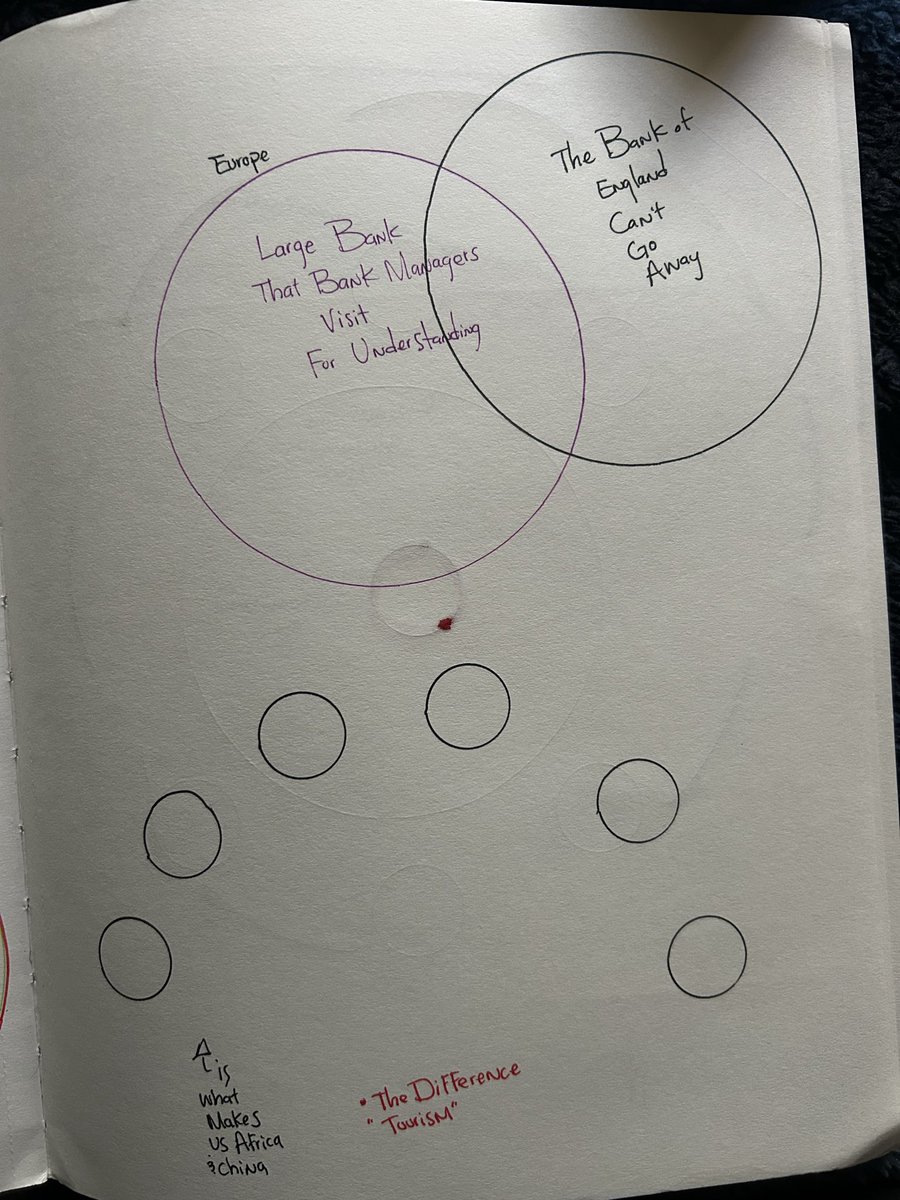 Europe
Large Bank
That Bank Managers
Visit
For Understanding
The Bank of
England
Can't
Go
Away
is
what
Makes
us Africa
& China
• The Difference
"Tourism"